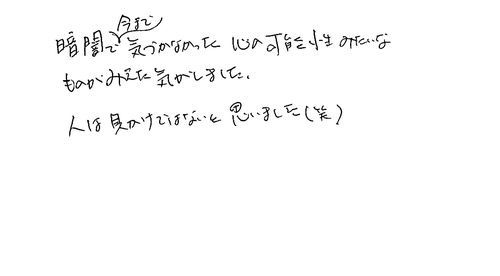 暗闇で今まで気づかなかった心の可能性みたいな
ものがみえた気がしました。
人は見かけではないと思いました(笑)